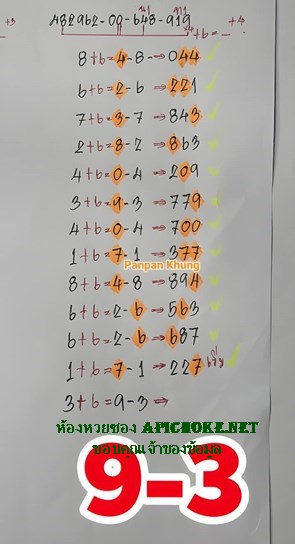 +3 482962-00-648-919 +4
+6=
8+6=4-8→044
6+6=2-6→221
7+6=3-7→843
2+6=8-2→863
4+6=0-4→209
3+6=9-3→779
4+6=0-4→700
1+6=7-1→377
Panpan Khung
8+6=4-8→894
6+6=2-6→563
6+6=2-6→687
1+6=7-1→227
3+6=9-3⇒
ห้องหวยซอง APICHOKE.NET
ขอบคุณเจ้าของข้อมูล
9-3